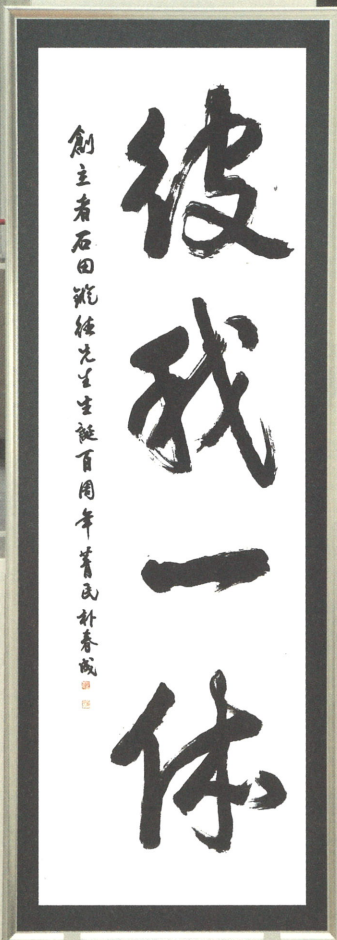 彼我一体
創立者石田錥徳先生生誕百周年 菁民朴春成